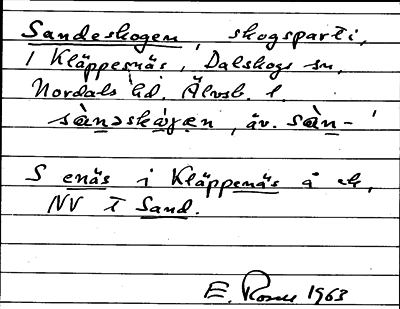 Sandeskogen, skogsparti,
i Kläppenäs, Dalskogs sn,
Nordals hd. Älvsb. l.
sànəskòγæn, äv. sàn-'
S enäs i Kläppenäs å ek,
NV T Sand.
E. 1963